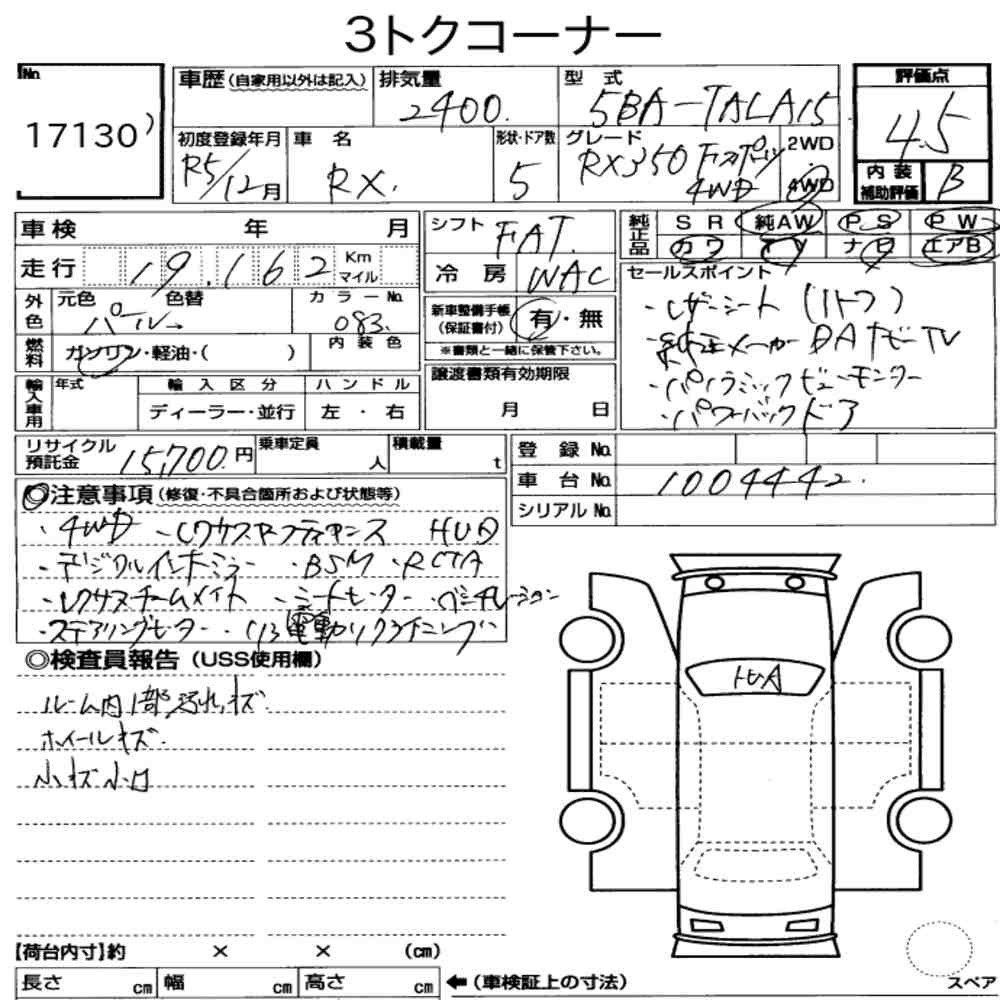 3トクコーナー
No.
17130
車歴(自家用以外は記入)
排気量
2400.
型 式
5BA-TALA15
評価点
4.5
初度登録年月
R5/12月
車 名
RX.
形状・ドア数
5
グレード
RX350 Fスポーツ
4WD
2WD
4WD
内 装
補助評価
B
車検 年 月
走行
19.162
Km
マイル
外色
元色 色替
パール
カラーNo.
083.
燃料
ガソリン・軽油・( )
内 装 色
輸入車用
年式
輸 入 区 分
ディーラー・並行
ハ ン ド ル
左 ・ 右
シフト
FAT.
冷 房
WAC
新車整備手帳
(保証書付)
有・無
※書類と一緒に保管下さい。
譲渡書類有効期限
月 日
純正品
S R
純AW
P S
P W
カワ
ナビ
エアB
セールスポイント
・レザーシート
・純正メーカーDAナビーTV
・パノラミックビューモニター
・パワーバックドア
リサイクル
預託金
15,700.円
乗車定員
人
積載量
t
登 録 No.
車 台 No.
1004442.
シリアル No.
◎注意事項(修復・不具合箇所および状態等)
・4WD HUD
・デジタルインナーミラー ・BSM ・RCTA
・レクサスチームメイト ・シートヒーター ・ベンチレーション
・ステアリングヒーター
◎検査員報告(USS使用欄)
ルーム内1部汚れ、キズ
ホイールキズ.
小キズ小凹
トUA
【荷台内寸】約 × × (cm)
長さ cm
幅 cm
高さ cm
←(車検証上の寸法)
スペア